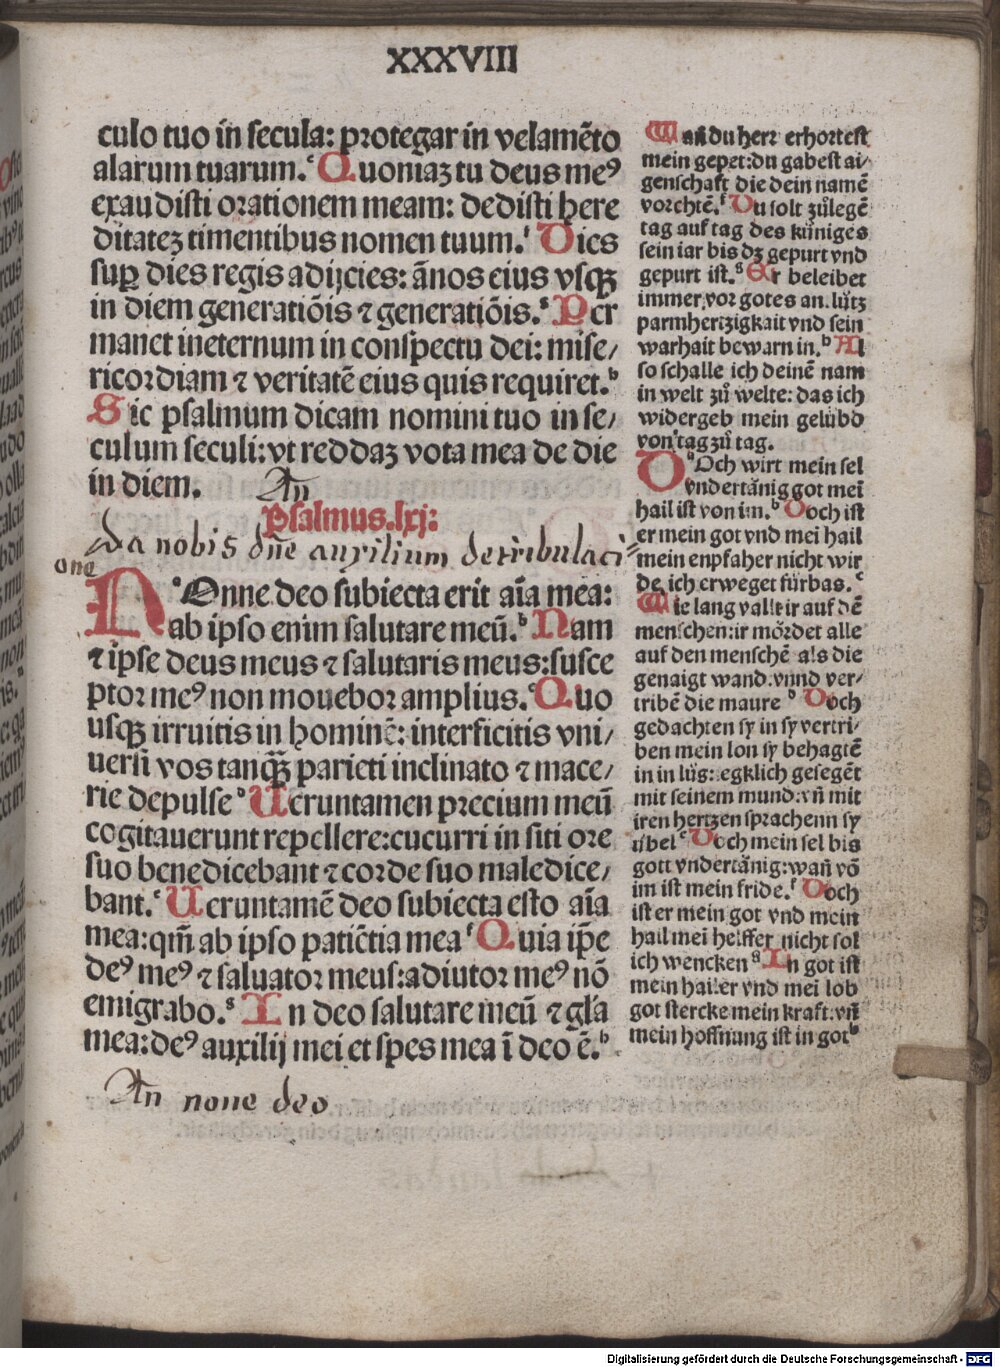 XXXVIII
culo tuo in secula: protegar in velamēto
alarum tuarum. ᶜ Quoniaꝫ tu deus meꝰ
exaudisti orationem meam: dedisti here
ditateꝫ timentibus nomen tuum. ᶠ Dies
suꝑ dies regis adijcies: ānos eius vsqꝫ
in diem generatiōis ⁊ generatiōis. ᵍ Per
manet ineternum in conspectu dei: mise/
ricordiam ⁊ veritatē eius quis requiret. ᵇ
Sic psalmum dicam nomini tuo in se/
culum seculi: vt reddaꝫ vota mea de die
in diem. An
Psalmus. lxj:
da nobis dn̄e auxilium de tribulaci⸗
one
NOnne deo subiecta erit aīa mea:
ab ipso enim salutare meū. ᵇ Nam
⁊ ipse deus meus ⁊ salutaris meus: susce
ptor meꝰ non mouebor amplius. ᶜ Quo
usqꝫ irruitis in hominē: interficitis vni/
uersi vos tanqꝫ parieti inclinato ⁊ mace/
rie depulse ᵈ Ueruntamen precium meū
cogitauerunt repellere: cucurri in siti ore
suo benedicebant ⁊ corde suo maledice/
bant. ᵉ Ueruntamē deo subiecta esto aīa
mea: qm̄ ab ipso patiētia mea ᶠ Quia ip̄e
deꝰ meꝰ ⁊ saluator meus: adiutor meꝰ nō
emigrabo. ᵍ In deo salutare meū ⁊ gl̄a
mea: deꝰ auxilij mei et spes mea ī deo ē. ᵇ
An none deo
Wañ du herr erhortest
mein gepet: du gabest ai/
genschaft die dein namē
vorchtē. ᶠ Du solt zůlegē
tag auf tag des küniges
sein iar bis dꝫ gepurt vnd
gepurt ist. ᵍ Er beleibet
immer vor gotes an. lütz
parmhertzigkait vnd sein
warhait bewarn in. ᵇ Al
so schalle ich deinē nam
in welt zů welte: das ich
widergeb mein gelübd
von tag zů tag.
DOch wirt mein sel
vndertänig got mei
hail ist von im. ᵇ Doch ist
er mein got vnd mei hail
mein enpfaher nicht wir
de, ich erweget fürbas. ᶜ
Wie lang vallt ir auf dē
menschen: ir mördet alle
auf den menschē als die
genaigt wand. vnnd ver-
tribē die maure ᵈ Doch
gedachten sy in sy vertri/
ben mein lon sy behagtē
in in lüg: egklich gesegēt
mit seinem mund: vñ mit
iren hertzen sprachenn sy
übel ᵉ Doch mein sel bis
gott vndertänig: wañ vō
im ist mein fride. ᶠ Doch
ist er mein got vnd mein
hail mei helffer nicht sol
ich wencken ᵍ In got ist
mein hailer vnd mei lob
got stercke mein kraft: vñ
mein hoffnung ist in got ᵇ
Digitalisierung gefördert durch die Deutsche Forschungsgemeinschaft - DFG